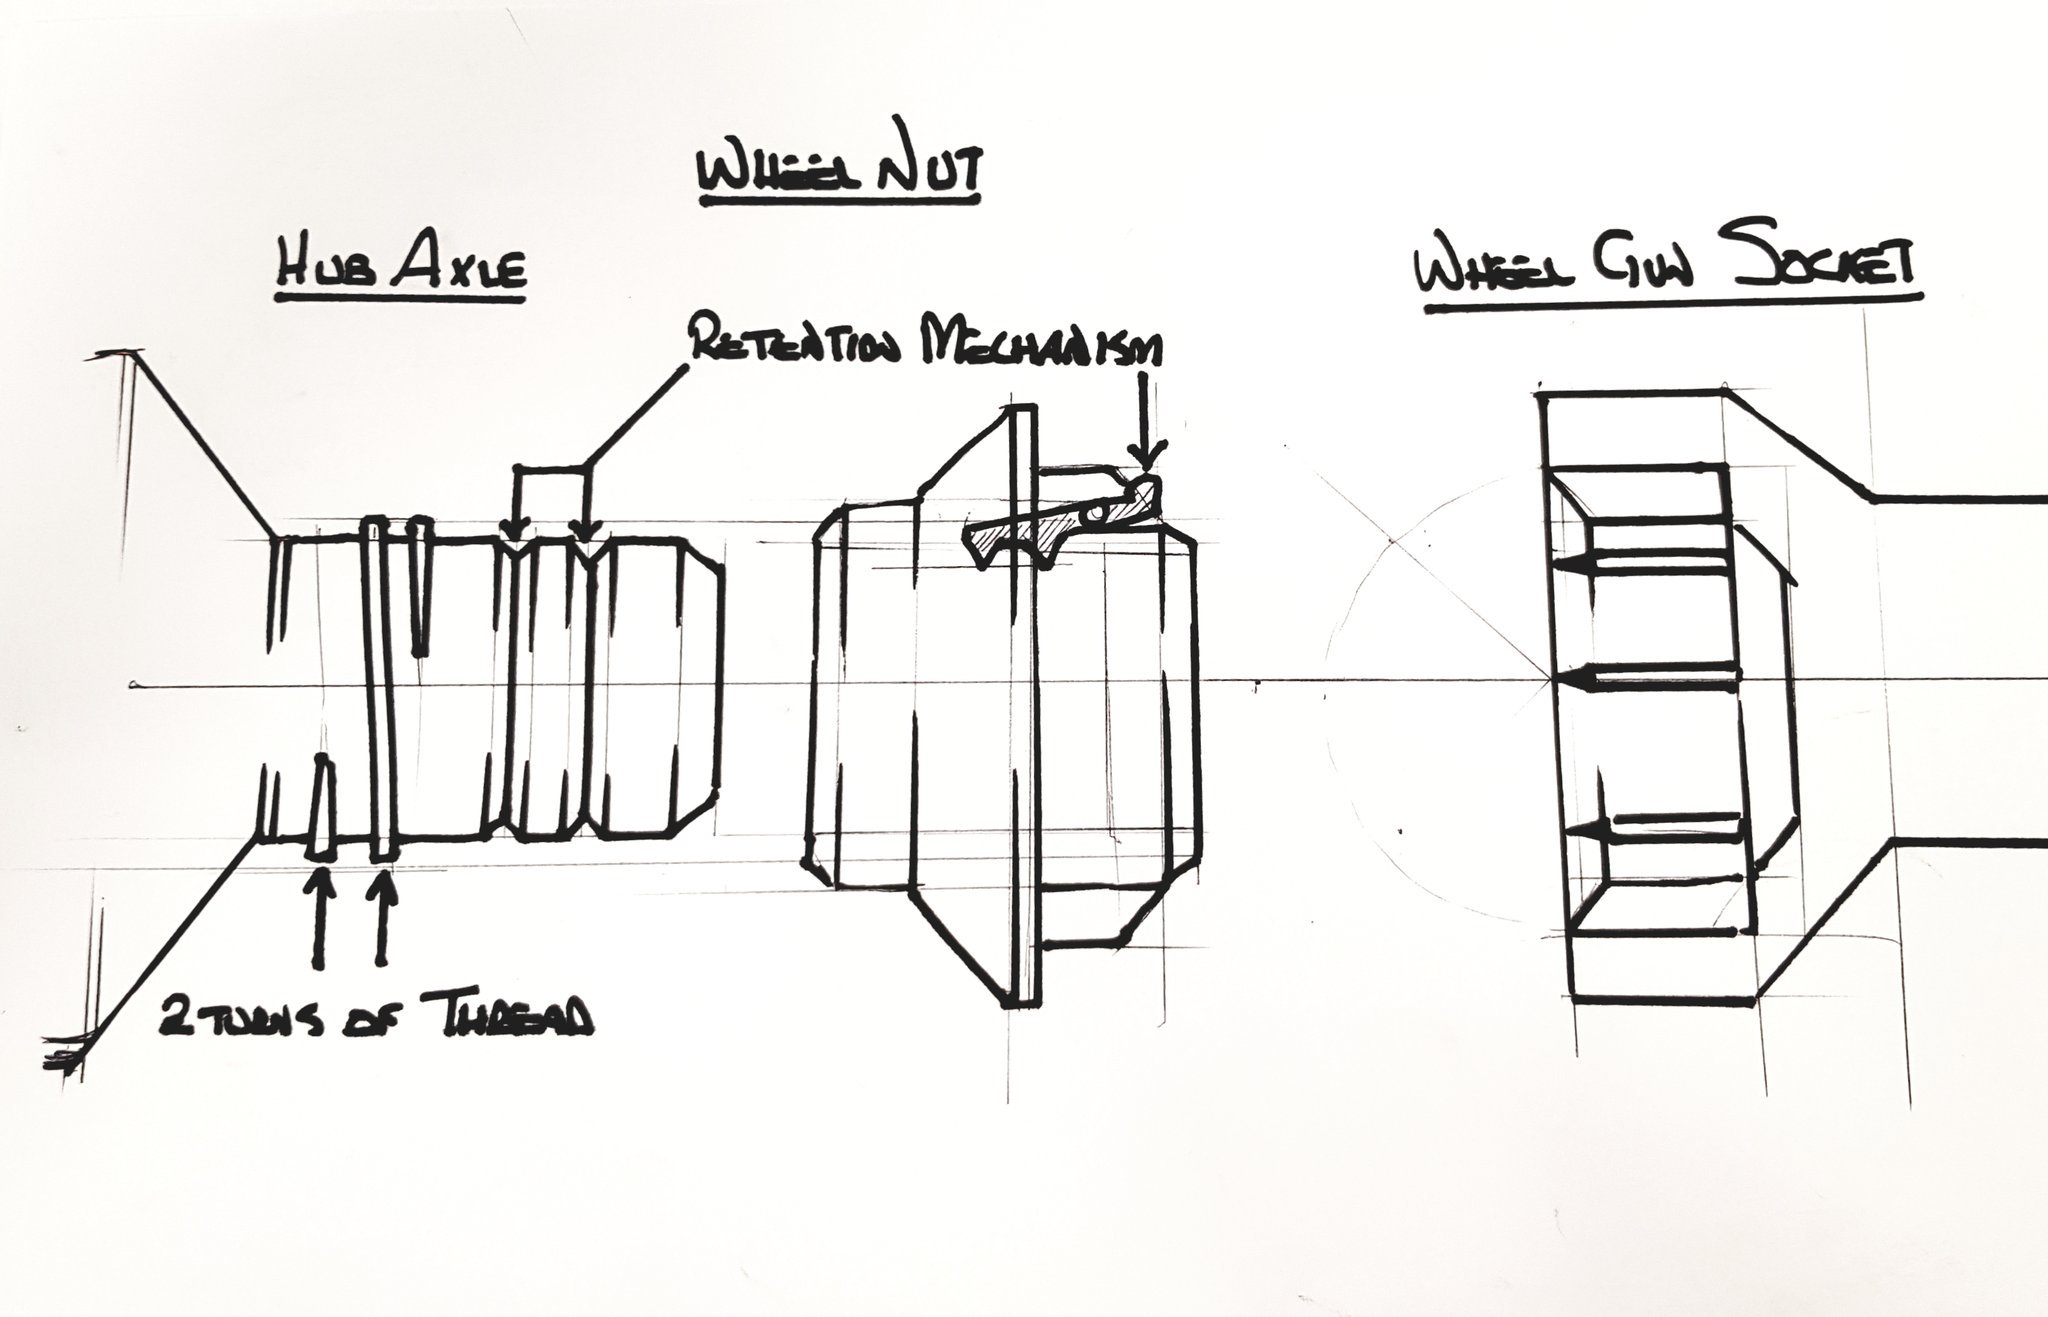 WHEEL NUT
HUB AXLE
WHEEL GUN SOCKET
RETENTION MECHANISM
2 TURNS OF THREAD